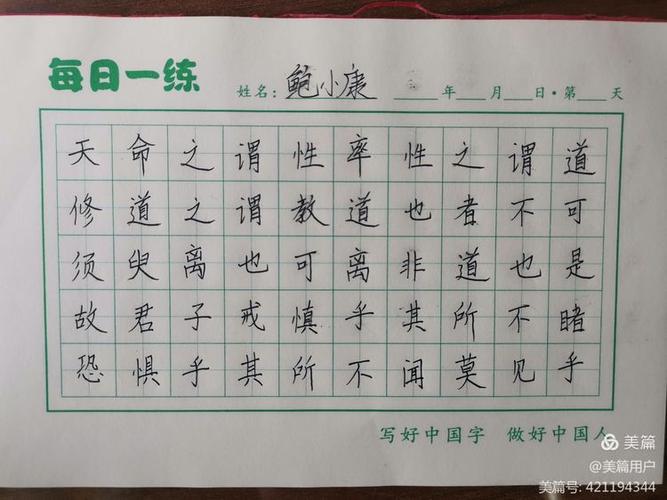 每日一练
姓名：鲍小康 年 月 日·第 天
天命之谓性率性之谓道
修道之谓教道也者不可
须臾离也可离非道也是
故君子戒慎乎其所不睹
恐惧乎其所不闻莫见乎
写好中国字 做好中国人
美篇
@美篇用户
美篇号: 421194344